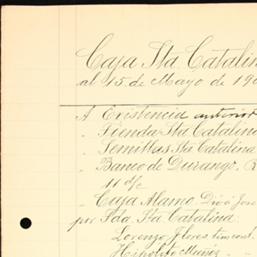 Caja Sta Catalin
al 15 de Mayo de 19
A Existencia anterior
" Tienda Sta Catalina
" Semillas Sta Catalina
" Banco de Durango,
11 d/c
" Caja Alamo Dió á José
por Sda Sta Catalina
Lorenzo Flores
Hipolito Muñiz